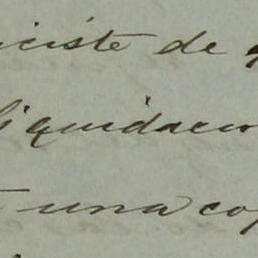 iciste de
liquidacio
una co